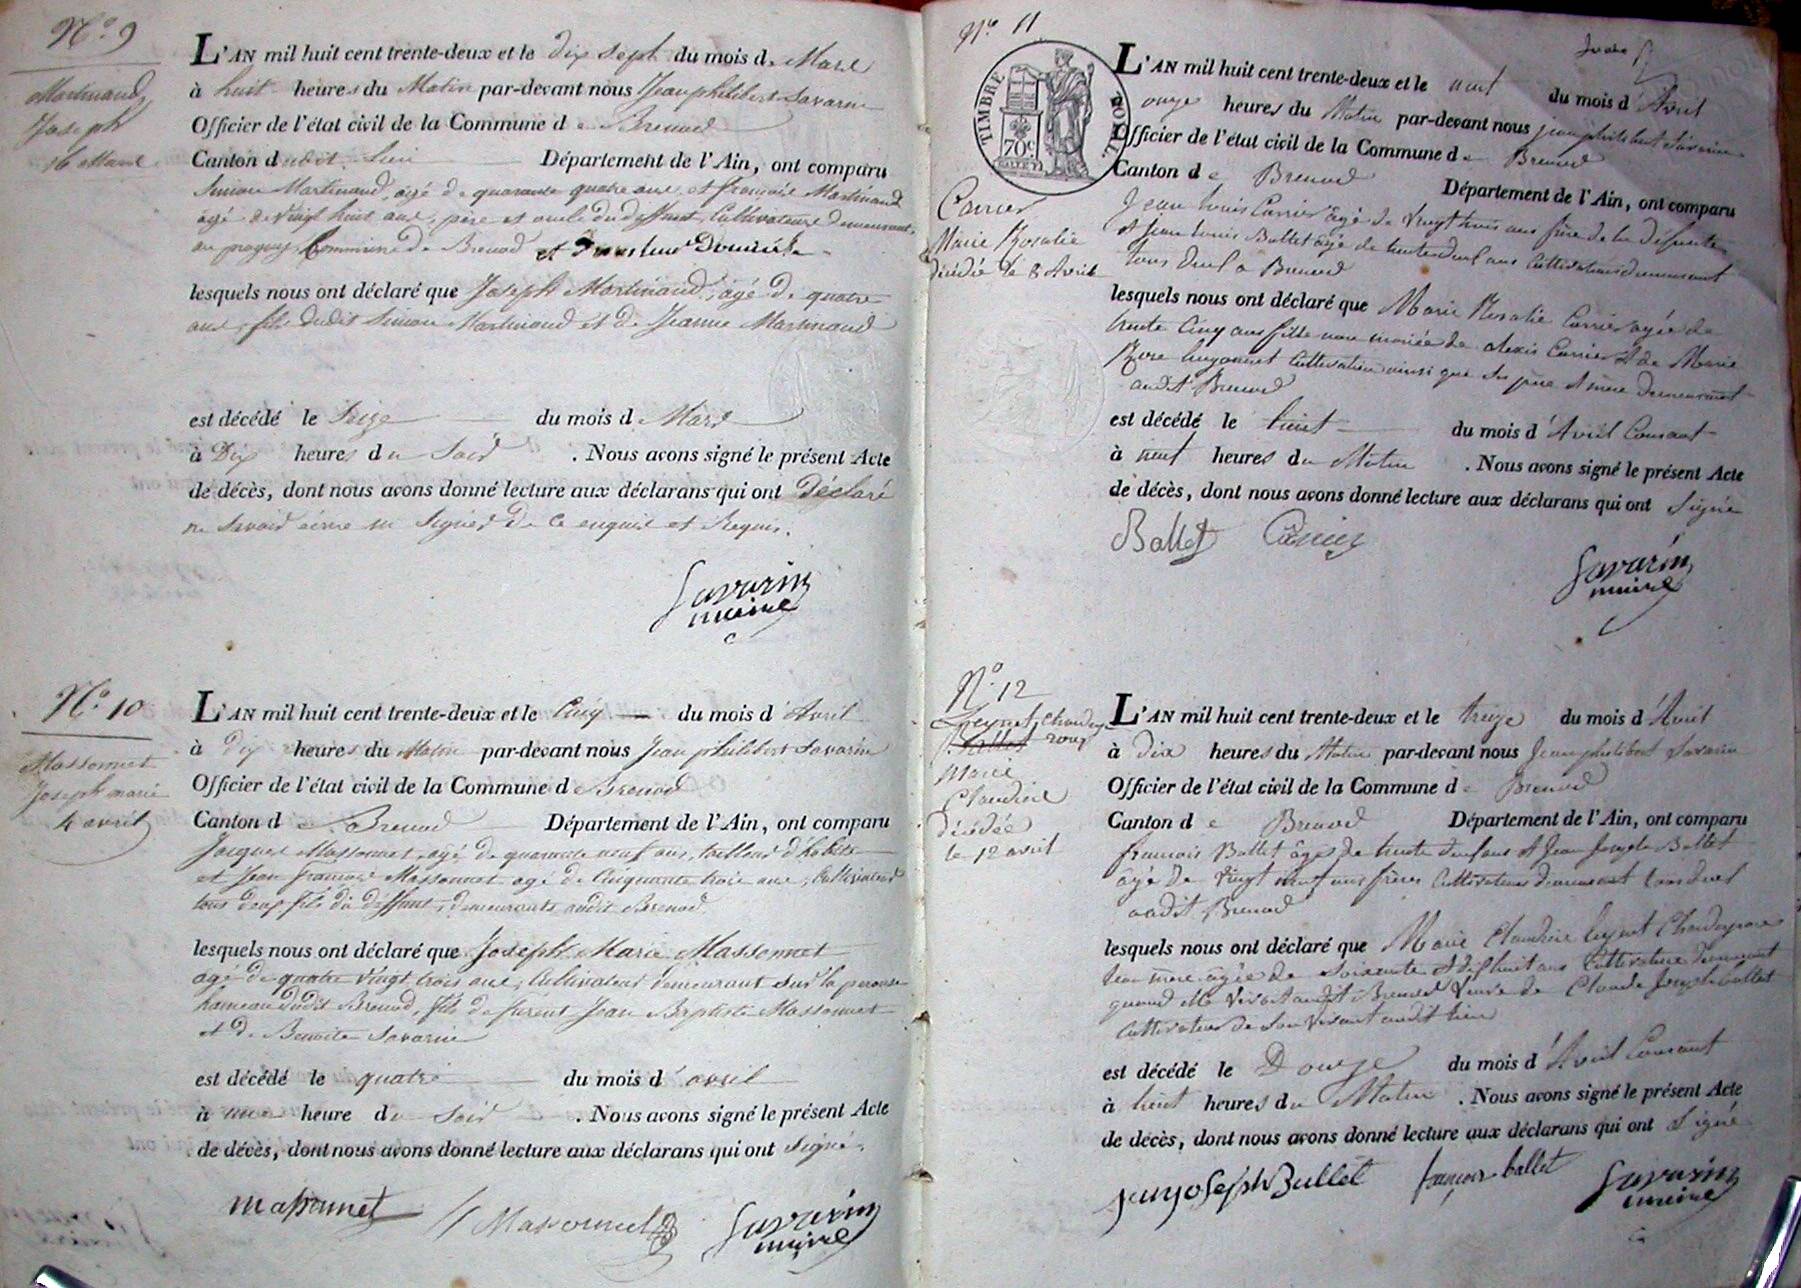 N.º 9
Martinand
Joseph
16 Mars
L'AN mil huit cent trente-deux et le dix sept du mois de Mars
à huit heures du Matin par-devant nous Jean philibert Savarin
Officier de l'état civil de la Commune de Brenod
Canton dudit lieu Département de l'Ain, ont comparu
Simon Martinand, agé de quarante quatre ans, et françois Martinand
agé de vingt huit ans, père et oncle du deffunt, Cultivateurs demeurant
Commune de Brenod et
lesquels nous ont déclaré que Joseph Martinand, agé de quatre
ans, fils dudit Simon Martinand et de Jeanne Martinand
est décédé le Seize du mois de Mars
à Dix heures du Soir . Nous avons signé le présent Acte
de décès, dont nous avons donné lecture aux déclarans qui ont déclaré
ne Savoir écrire ni Signer de ce enquis et Requis.
Savarin
maire
N.º 10
Massonnet
Joseph marie
4 avril
L'AN mil huit cent trente-deux et le Cinq du mois d'Avril
à dix heures du Matin par-devant nous Jean philibert Savarin
Officier de l'état civil de la Commune de Brenod
Canton de Brenod Département de l'Ain, ont comparu
Jacques Massonnet, agé de quarante neuf ans, tailleur d'habits
et Jean françois Massonnet agé de Cinquante trois ans, Cultivateur
tous deux fils du deffunt, demeurants audit Brenod
lesquels nous ont déclaré que Joseph Marie Massonnet
agé de quatre vingt trois ans, Cultivateur demeurant Sur la perouse
hameau dudit Brenod, fils de furent Jean Baptiste Massonnet
et de Benoite Savarin
est décédé le quatre du mois d'avril
à une heure du Soir . Nous avons signé le présent Acte
de décès, dont nous avons donné lecture aux déclarans qui ont Signé.
massonnet Massonnet Savarin
maire
N.º 11
TIMBRE ROYAL
70c
Carrier
Marie Rosalie
décédée le 8 Avril
L'AN mil huit cent trente-deux et le neuf du mois d'Avril
à onze heures du Matin par-devant nous jean philibert Savarin
Officier de l'état civil de la Commune de Brenod
Canton de Brenod Département de l'Ain, ont comparu
Jean Louis Carrier âgé de Vingt trois ans frère de la défunte
et Jean Louis Ballet âgé de trente deux ans Cultivateurs demeurant
tous deux a Brenod
lesquels nous ont déclaré que Marie Rosalie Carrier agée de
trente Cinq ans fille non mariée de Alexis Carrier et de Marie
Rose Cultivatrice ainsi que Ses père et mère demeurant
audit Brenod
est décédé le huit du mois d'Avril Courant
à neuf heures du Matin . Nous avons signé le présent Acte
de décès, dont nous avons donné lecture aux déclarans qui ont Signé
Ballet Carrier
Savarin
maire
N.º 12
Leynet Chaudey
Ballet rouge
Marie
Claudine
décédée
le 12 avril
L'AN mil huit cent trente-deux et le treize du mois d'Avril
à dix heures du Matin par-devant nous Jean philibert Savarin
Officier de l'état civil de la Commune de Brenod
Canton de Brenod Département de l'Ain, ont comparu
francois Ballet âgé de trente deux ans et Jean Joseph Ballet
âgé de Vingt neuf ans frères Cultivateurs demeurant tous deux
audit Brenod
lesquels nous ont déclaré que Marie Claudine
leur mère agée de Soixante et dix huit ans Cultivatrice demeurant
quand elle vivait audit Brenod Veuve de Claude Joseph ballet
Cultivateur de Son Vivant audit lieu
est décédé le Douze du mois d'Avril Courant
à huit heures du Matin . Nous avons signé le présent Acte
de décès, dont nous avons donné lecture aux déclarans qui ont Signé
jean joseph Ballet françois ballet Savarin
maire